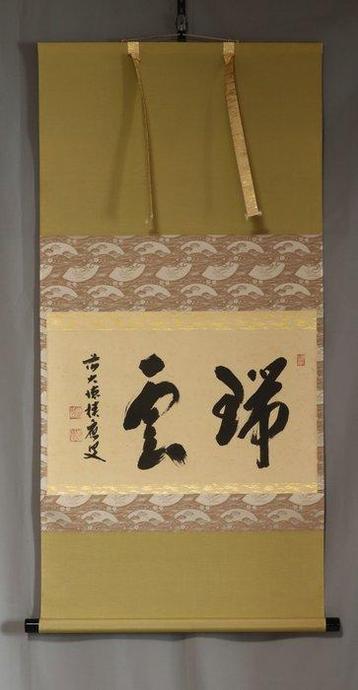 瑞雲
前大德積應叟